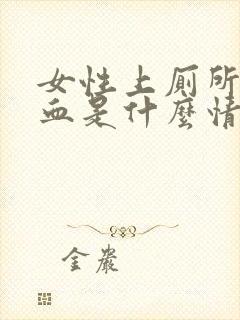 女性上厕所
血是什麼情
金嚴